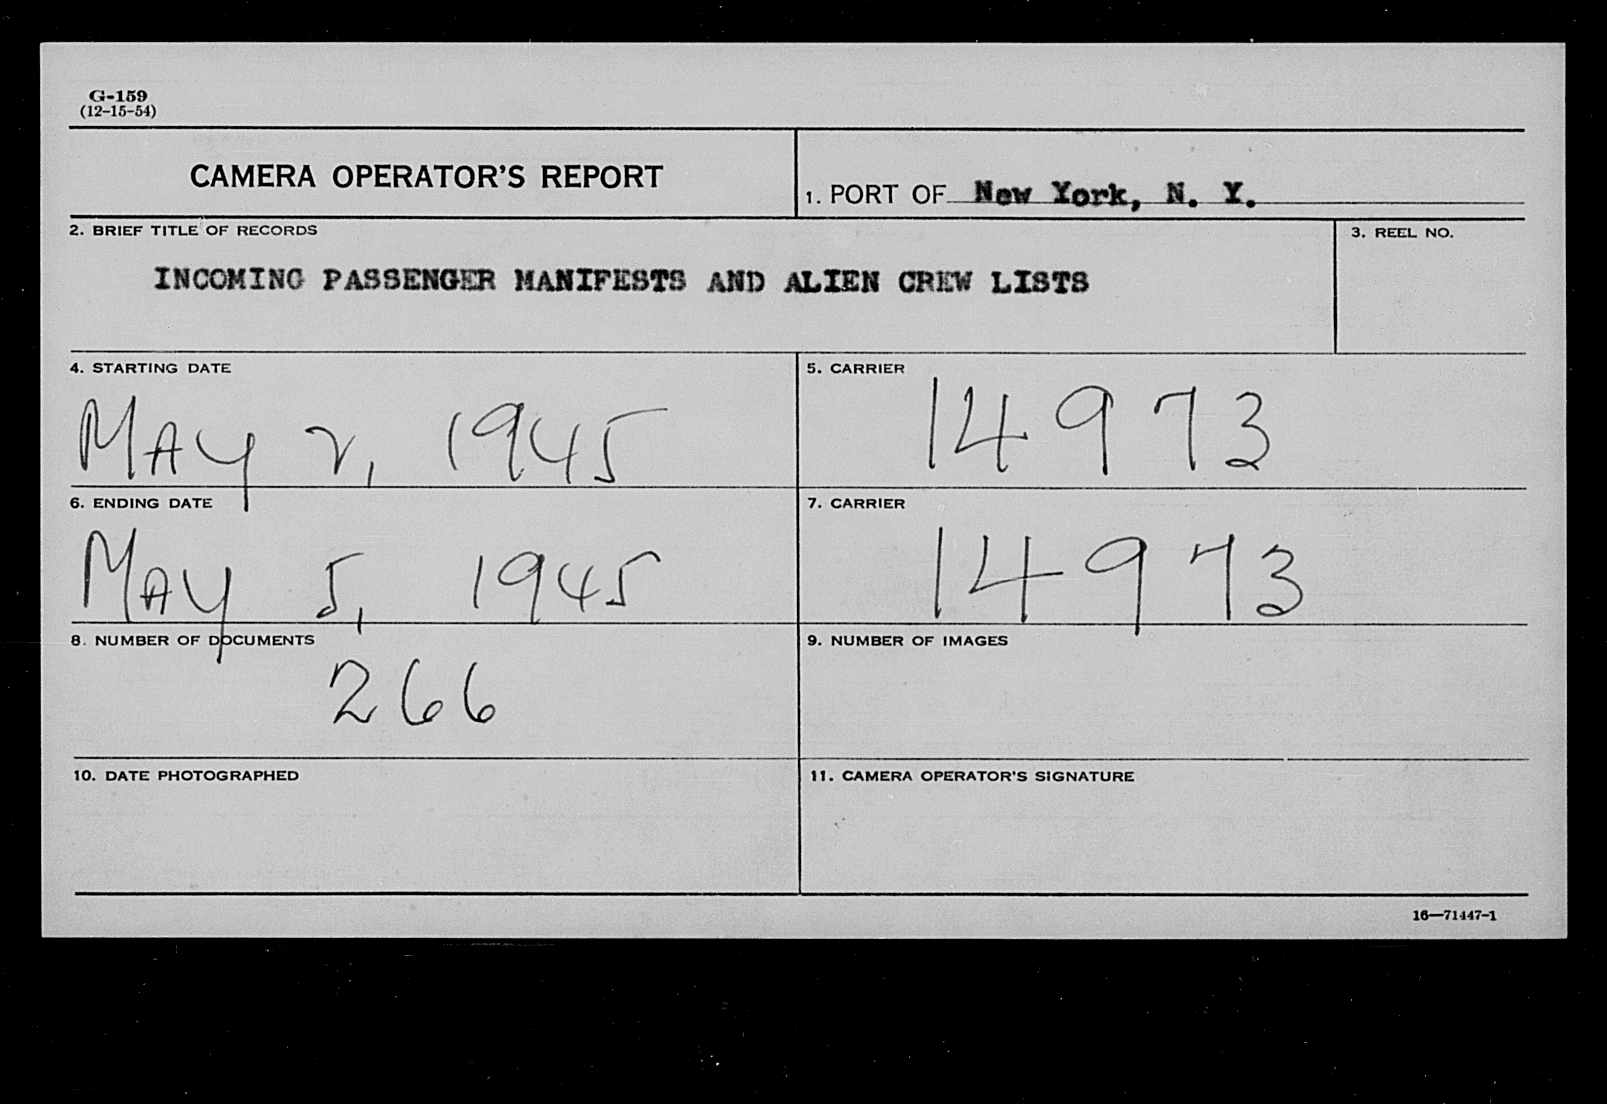 G-159
(12-15-54)
CAMERA OPERATOR'S REPORT
1. PORT OF New York, N. Y.
2. BRIEF TITLE OF RECORDS
3. REEL NO.
INCOMING PASSENGER MANIFESTS AND ALIEN CREW LISTS
4. STARTING DATE
MAY 2, 1945
5. CARRIER
14973
6. ENDING DATE
MAY 5, 1945
7. CARRIER
14973
8. NUMBER OF DOCUMENTS
266
9. NUMBER OF IMAGES
10. DATE PHOTOGRAPHED
11. CAMERA OPERATOR'S SIGNATURE
16—71447-1